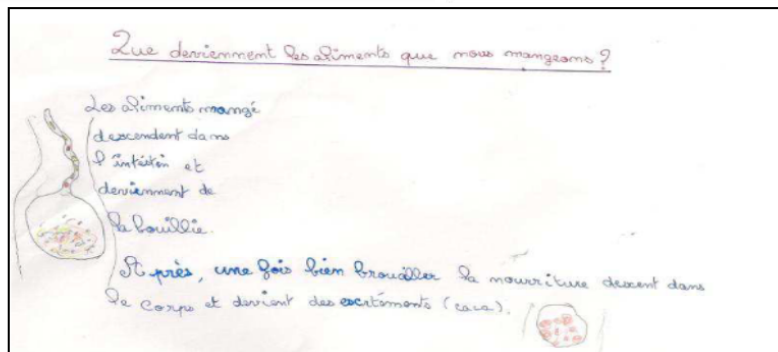 Que deviennent les aliments que nous mangeons ?
Les aliments mangé
descendent dans
l'intéstin et
deviennent de
la bouillie.
Après, une fois bien brouiller la nourriture descent dans
le corps et devient des escréments (caca).